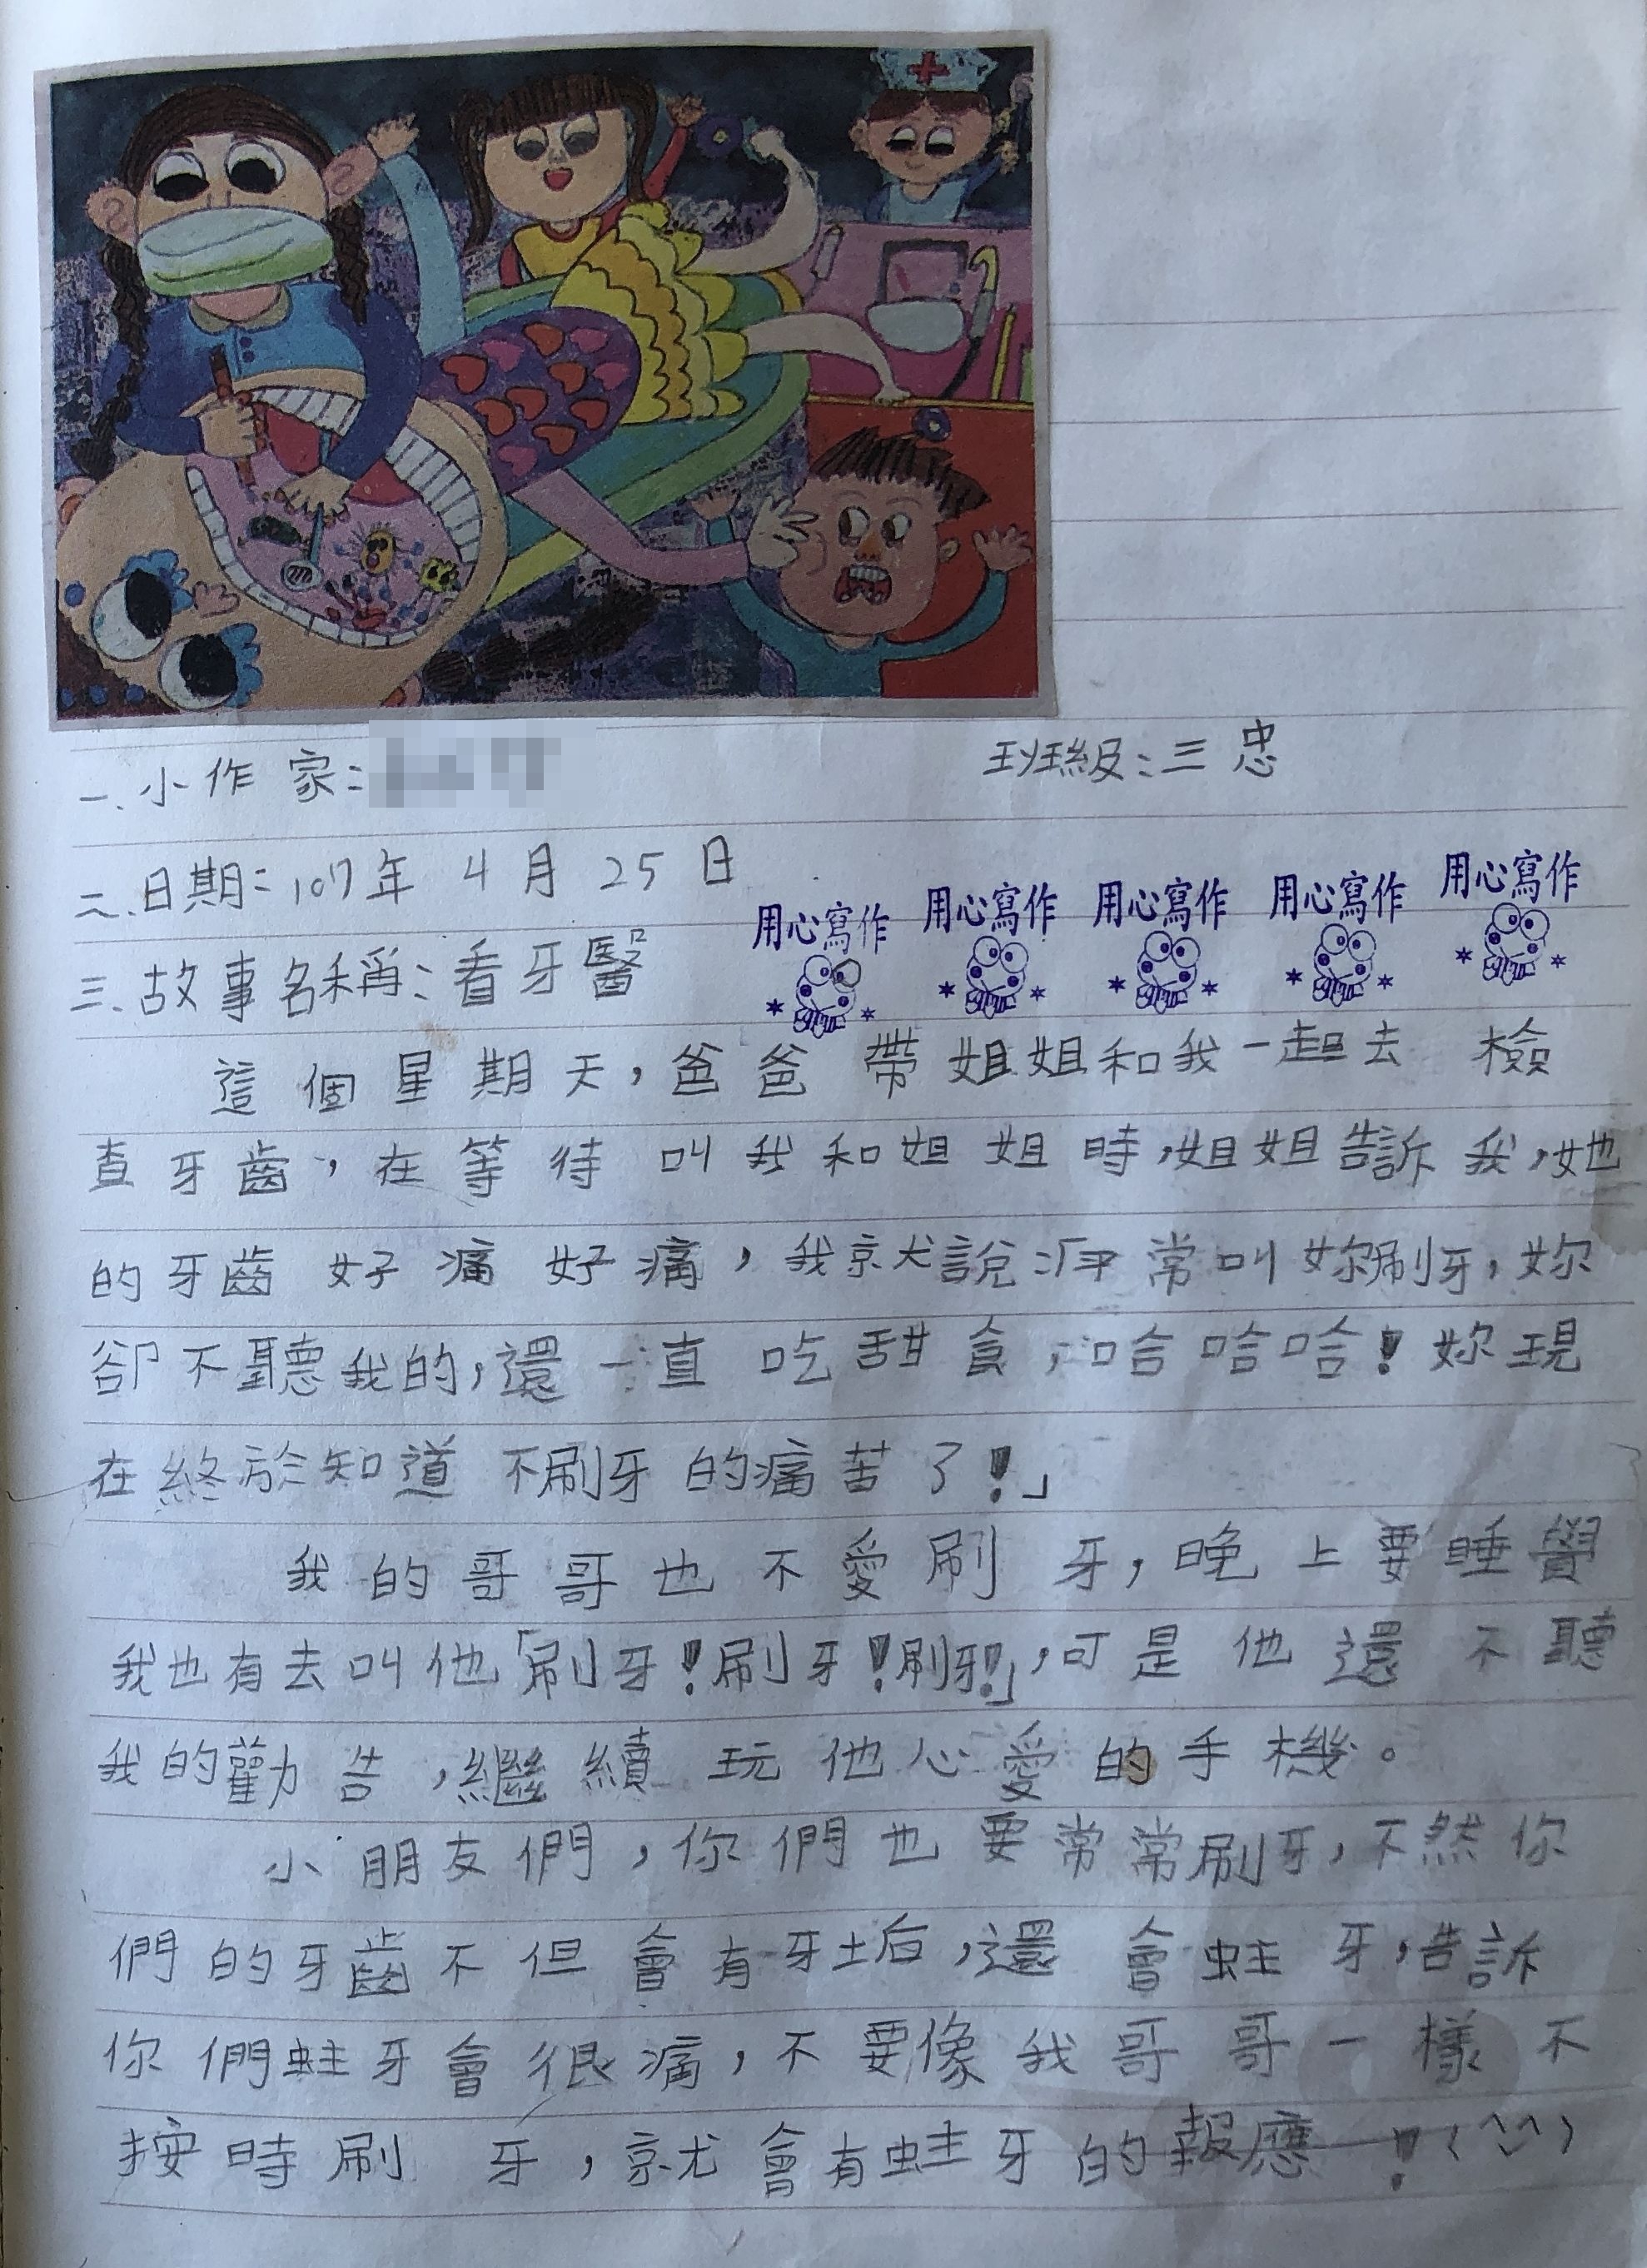 一、小作家：
班級：三忠
二、日期：107年4月25日
用心寫作 用心寫作 用心寫作 用心寫作 用心寫作
三、故事名稱：看牙醫
這個星期天，爸爸帶姐姐和我一起去檢
查牙齒，在等待叫我和姐姐時，姐姐告訴我，她
的牙齒好痛好痛，我就說：「平常叫妳刷牙，妳
卻不聽我的，還一直吃甜食，哈哈哈！妳現
在終於知道不刷牙的痛苦了！」
我的哥哥也不愛刷牙，晚上要睡覺
我也有去叫他「刷牙！刷牙！刷牙！」，可是他還不聽
我的勸告，繼續玩他心愛的手機。
小朋友們，你們也要常常刷牙，不然你
們的牙齒不但會有牙垢，還會蛀牙，告訴
你們蛀牙會很痛，不要像我哥哥一樣不
按時刷牙，就會有蛀牙的報應！(^u^)